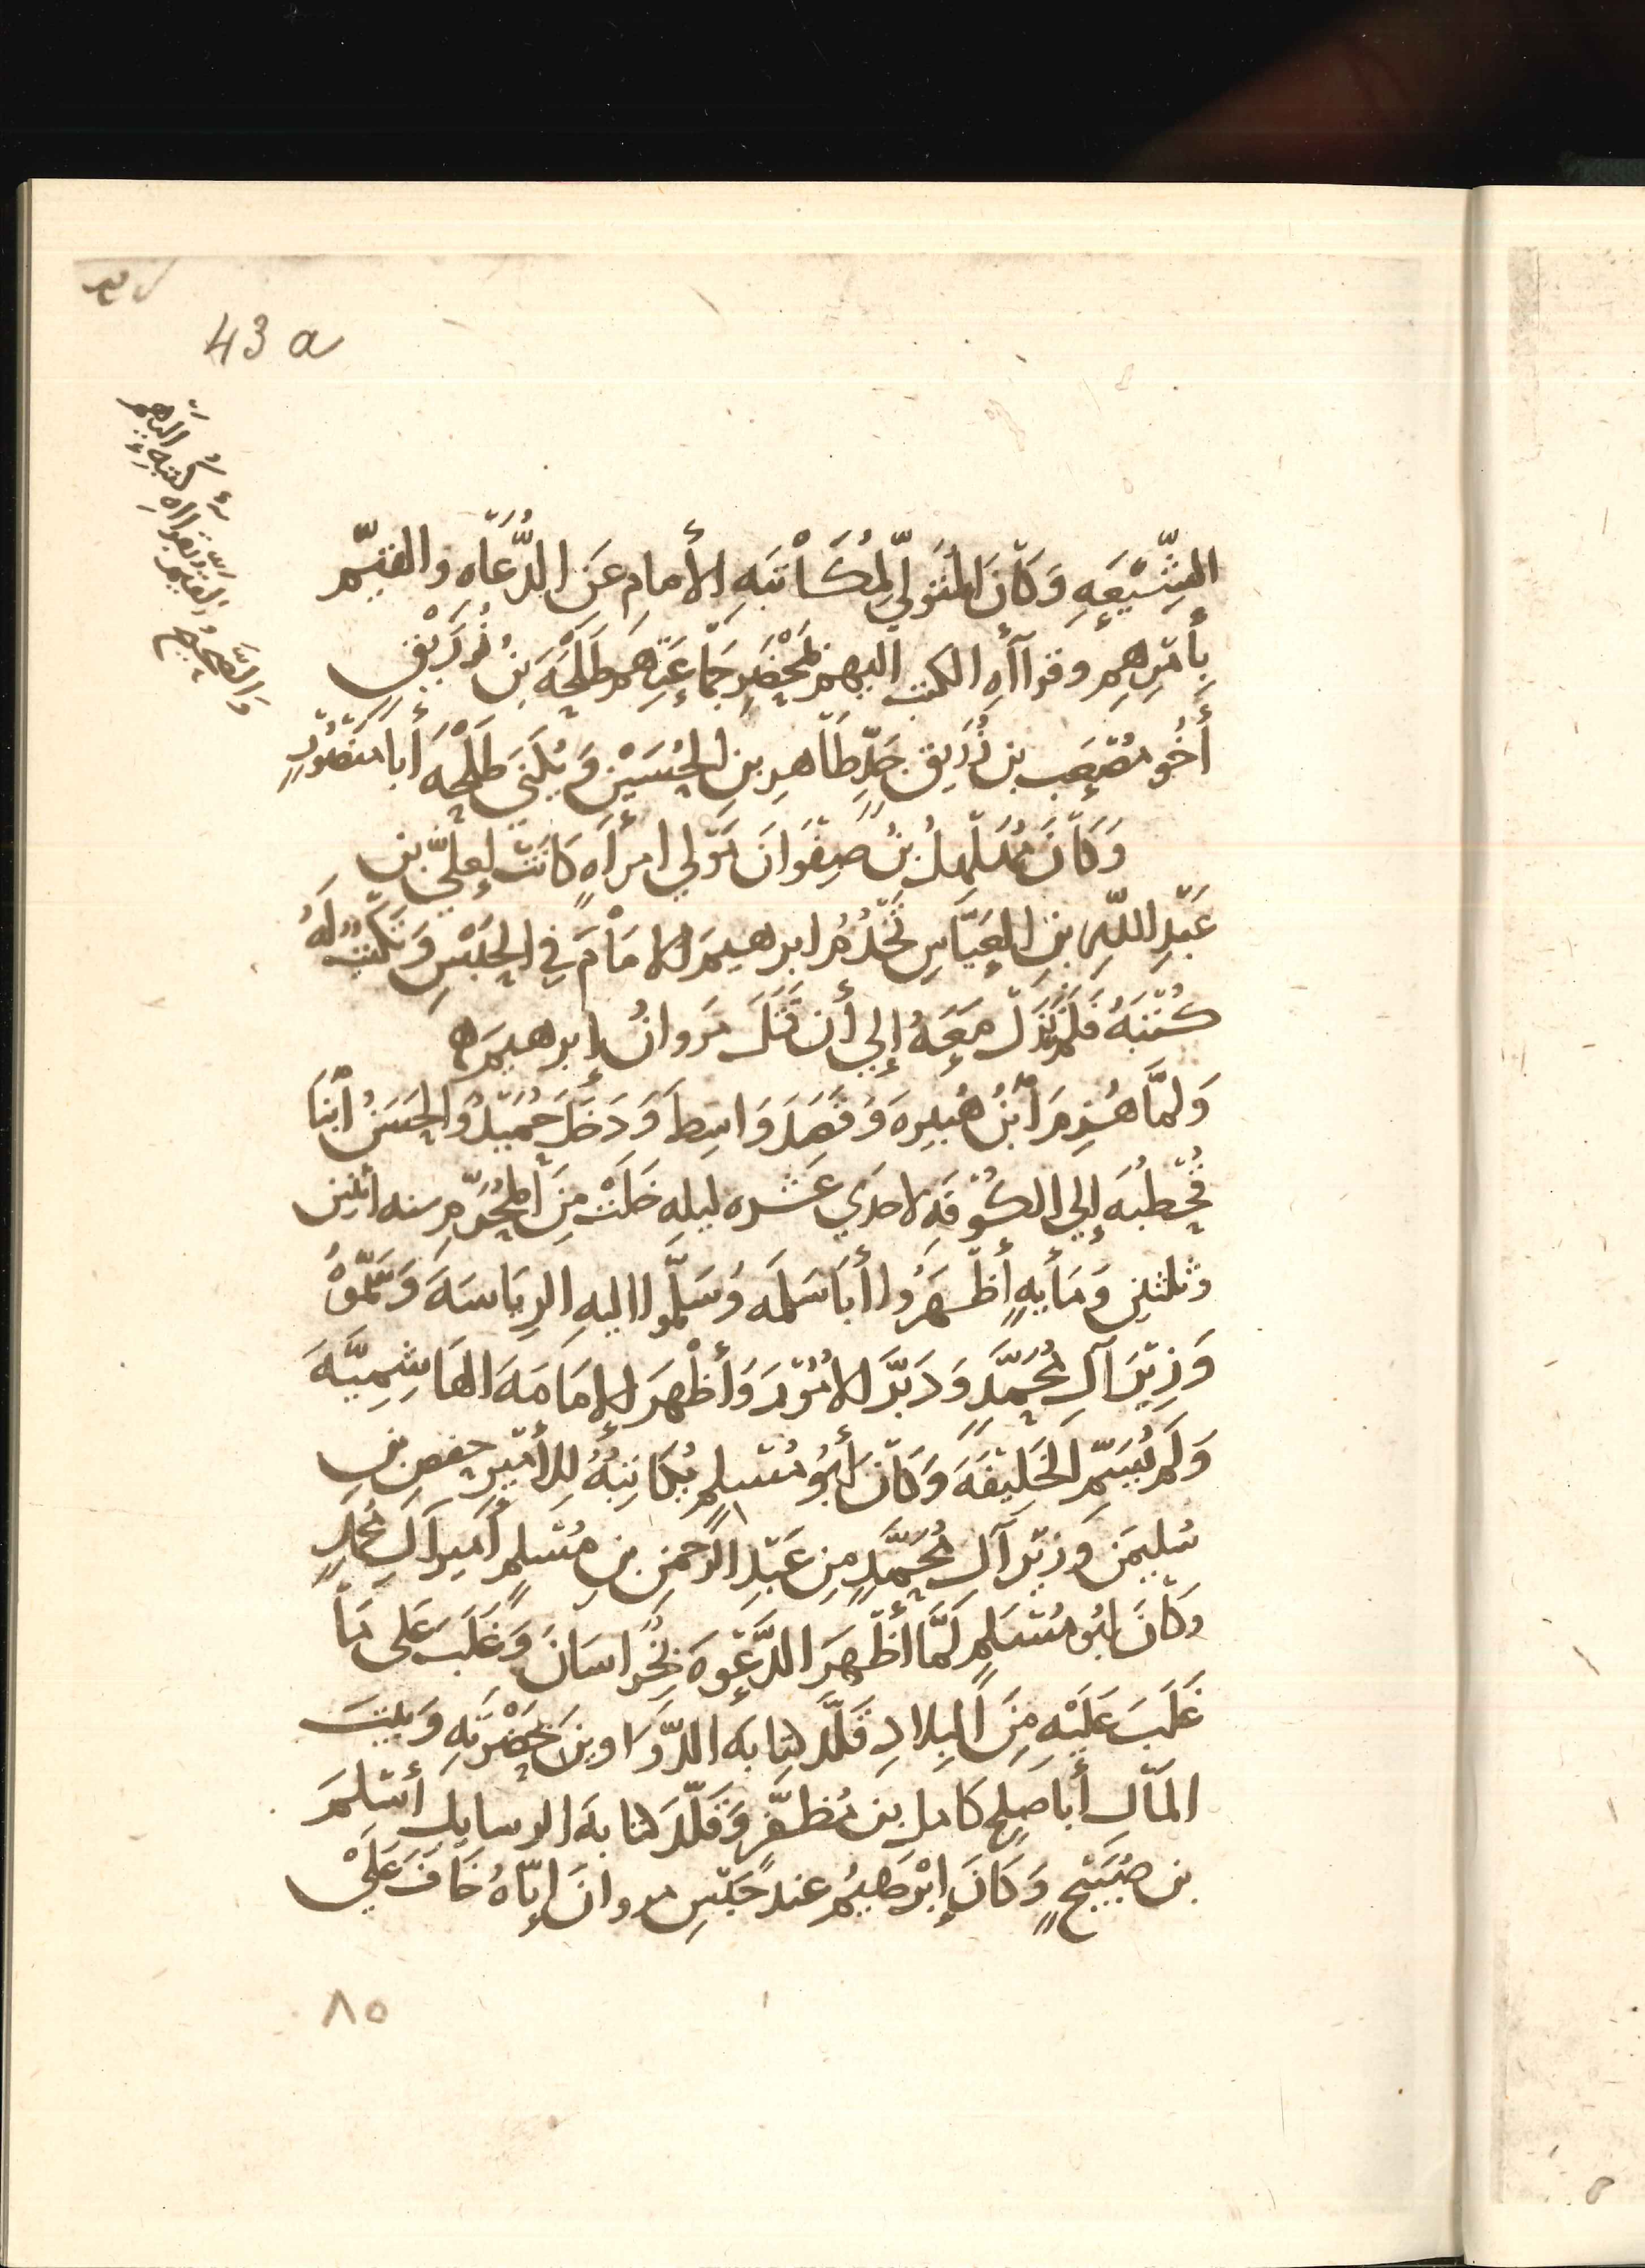 43 a
والصحيح والقيم بقراءة كتبه اليهم
الشِّيْعَهِ وَكَانَ المُتَوَلّي لِمُكَاْتَبَهِ الأمامِ عَنِ الدُّعَاهِ والقيّم
بِأمْرِهِم وقرآأهِ الكتب اليهم بمَحْضَرِ جَمَاْعَتِهم طَلْحَهَ بنُ زُرَيْقٍ
أخُو مُصْعَب بن زُرَيق جَدّ طَاهِرِ بنِ الحُسَيْن وَيُكَنَي طَلْحَه أبا مَنْصُوْرٍ
وَكَانَ مُهَلهِلُ بنُ صَفْوَانَ مَوْلي امرأهٍ كَانَتْ لِعَليّ بن
عَبْدِ اللّهِ بنِ العَبَّاسِ يَخْدُمُ ابرهيمَ الامَاْمَ فِي الحَبْسِ وَيَكْتُبُ لَهُ
كُتْبَهُ فَلَم يَزَل مَعَهُ إلي أن قَتَلَ مَروانُ إبرهيمَ ه
وَلمَّا هُزِمَ أبْنُ هُبيرهَ وَقَصَدَ وَاسِطَ وَدَخَلَ حُمَيْدُ وَالحَسَنُ أبْنَا
قُحطُبَه إلي الكُوْفَهِ لاحدَي عَشره ليلهٍ خَلَتْ مِنَ المُحَرَّمِ سنه اثنين
وثلثين وَمَأيهٍ أظْهَرُوا أبَا سَلمَه وَسَلَّموا اليهِ الرِيَاسَهَ وَسَمَّوْهُ
وَزِيْرَ آلِ مُحَمَّدٍ وَدَبَّرَ الامُوْرَ وَأظْهَرَ الإمَامَهَ الهَاشِمِيَّهَ
وَلَم يُسَمِّ الخَلِيْفَهَ وَكَانَ أبُوْ مُسْلِمٍ يُكَاتِبُهُ لِلأمْيرِ حفصِ بنِ
سُليمَن وَزِيْرِ آلِ مُحَمَّدٍ مِن عَبْدِ الرَّحمنِ بنِ مُسْلمٍ أمِيرِ آلِ مُحَمَّدٍ
وَكَانَ ابُو مُسْلِمٍ لَمَّا أظْهَرَ الدَّعْوهَ بخُراسَانَ وَغَلَبَ عَلى مَاْ
غَلَبَ عَلَيْهِ مِنَ البِلادِ قَلَّدَ كِتَابهَ الدَّوَاوينَ بحَضْرَتِهِ وَبيتَ
المَال أبا صلح كامل بن مُظفَّرٍ وَقَلَّدَ كتابهَ الرسايِلِ أسْلَمَ
بن صُبَيْحٍ وَكَانَ إبْرَهيمُ عند حَبْسِ مروانَ إيّاهُ خَافَ عَلَيْ
٨٥